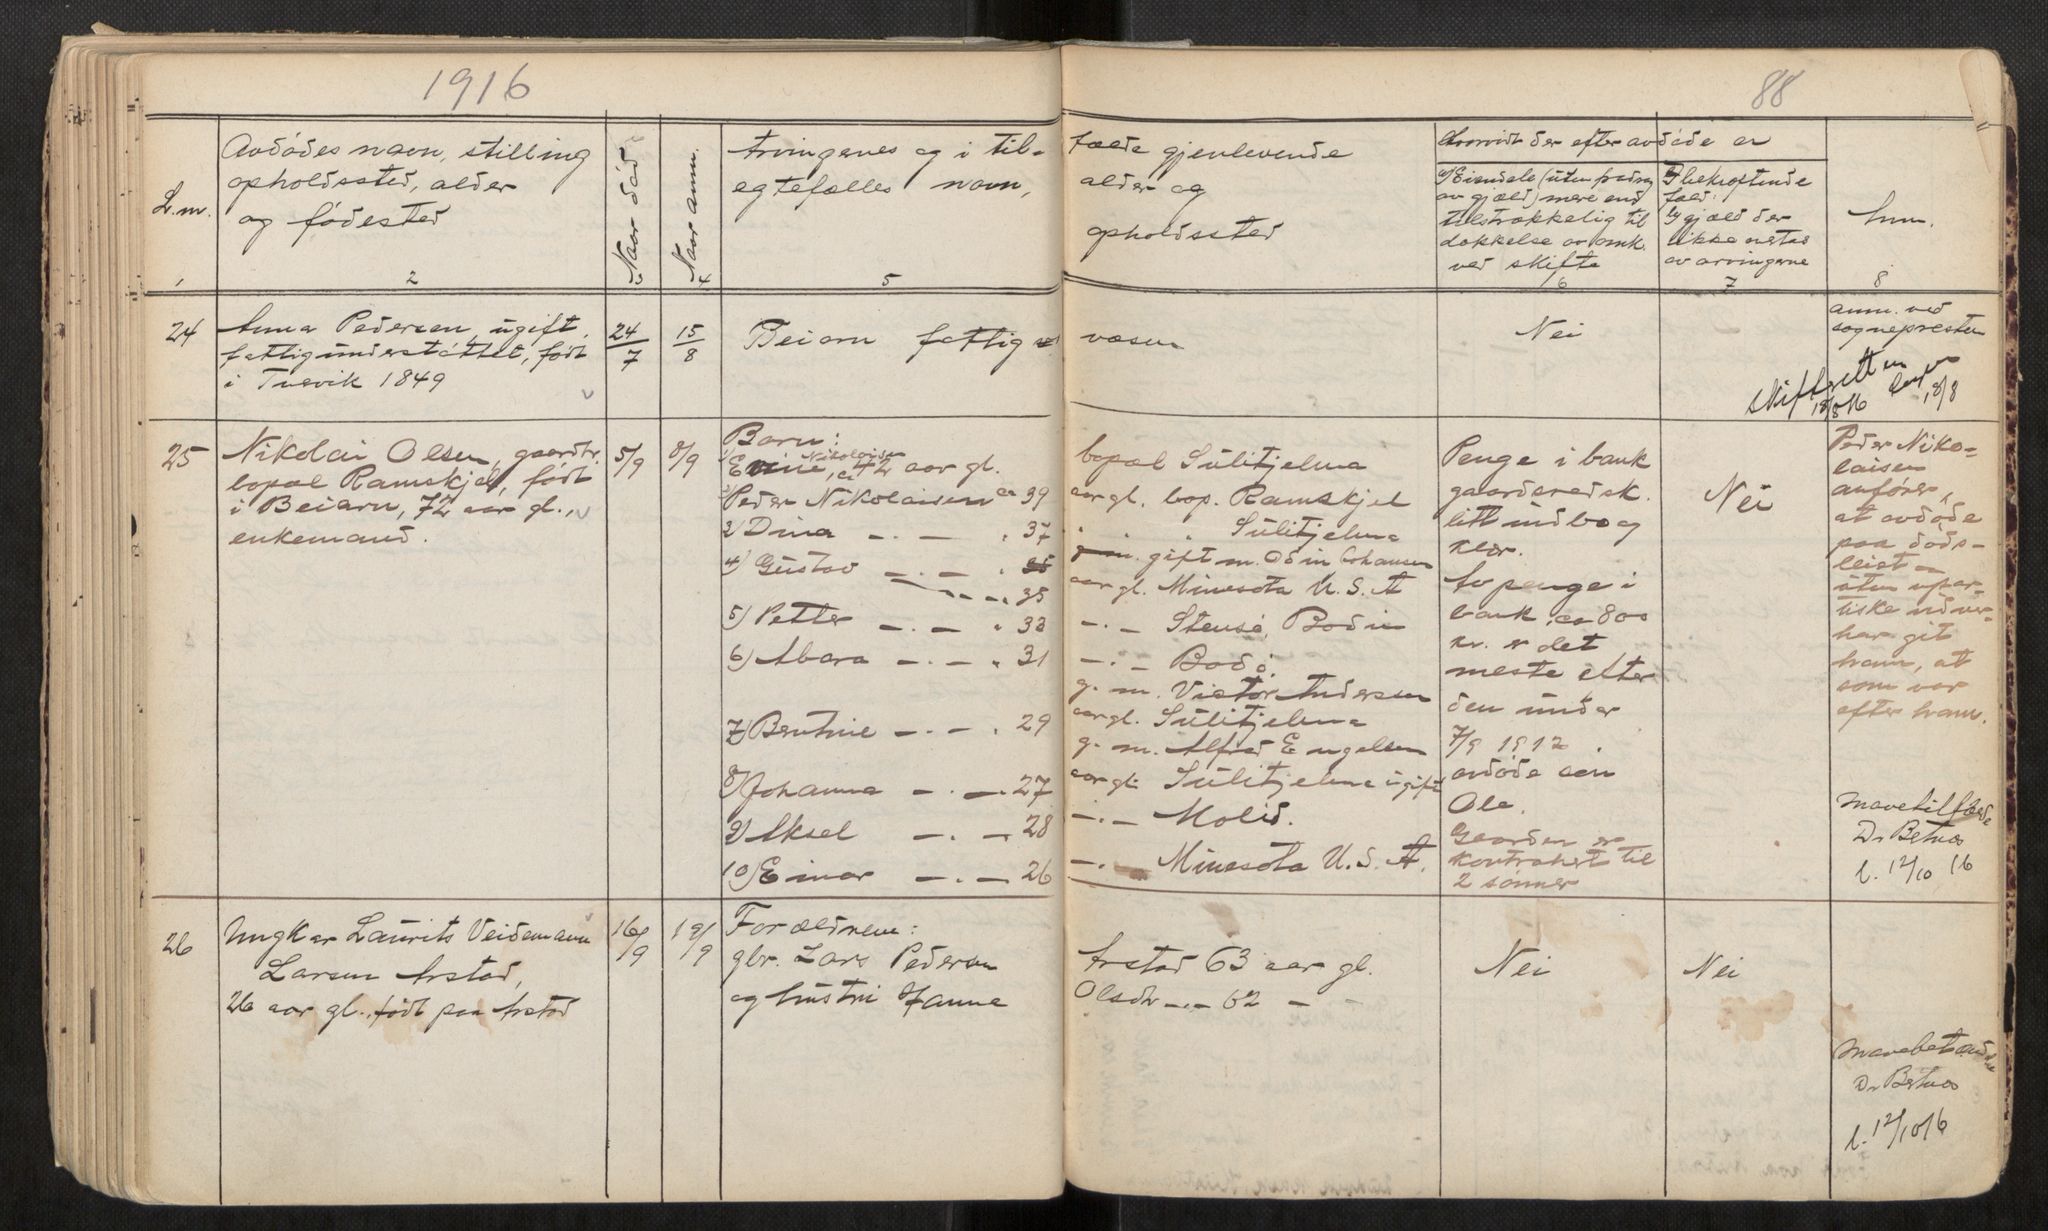 1916
88
L.nr.
Avdødes navn, stilling
opholdssted, alder
og fødested
Naar død
Naar anm.
Arvingenes og i til-
egtefælles navn,
fælde gjenlevende
alder og
opholdssted
Hvorvidt der efter avdøde er
Eiendele (uten fradrag
av gjæld) mere end
tilstrækkelig til
dækkelse av omk.
ved skifte
I bekræftende
fald:
gjæld der
ikke vedtas
av arvingerne
Anm.
1
2
3
4
5
6
7
8
24
Anna Pedersen, ugift,
fattigunderstøttet, født
i Tvervik 1849
24/7
15/8
Beiarn fattig
væsen
Nei
anm. ved
sognepresten
Skifteretten
18/8 16
18/8
25
Nikolai Olsen, gaardbr.
bopæl Ramskjel, født
i Beiarn, 72 aar gl.,
enkemand.
5/9
8/9
Barn:
Nikolaisen
1) Evine, ca 42 aar gl.
bopæl Sulitjelma
2) Peder Nikolaisen ca 39
aar gl. bop. Ramskjel
3) Dina —.— " 37
" " " Sulitjelma
g. m. gift m. Odin Johansen
4) Gustav —.— " 35
—.— 35
aar gl. Minesota U. S. A
5) Petter —.— " 33
—.— Stensø, Bodin
6) Abara —.— " 31
—.— Bodø
g. m. Victor Andersen
7) Benthine —.— " 29
aar gl. Sulitjelma
g. m. Alfred Engelsen
8) Johanna —.— 27
aar gl. Sulitjelma ugift
9) Aksel —.— 28
—.— Molid.
10) Einar —.— 26
—.— Minesota U. S. A.
Penge i bank
gaardsredsk.
litt indbo og
klær.
Av penge i
bank ca 800
kr. er det
meste efter
den under
7/9 1912
avdøde søn
Ole.
Gaarden er
kontrahert til
2 sønner
Nei
Peder Niko-
laisen
anfører,
at avdøde
paa døds-
leiet
uten upar-
tiske vidner
har git
ham, at
som var
efter ham.
mavetilfælde
Dr Betuos
l. 12/10 16
26
Ungkar Laurits Veidemann
Larsen Arstad,
26 aar gl., født paa Arstad
16/9
19/9
Forældrene:
gbr. Lars Pedersen
og hustru Hanna
Arstad 63 aar gl.
Olsdr —.— 62 — -
Nei
Nei
mavebetændelse
Dr Betuos
l. 12/10 16